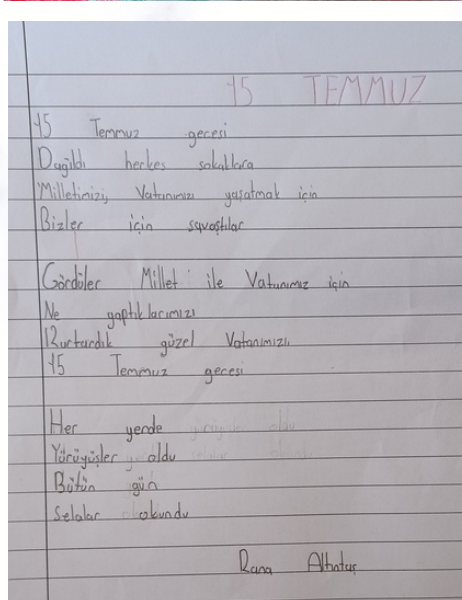 15 TEMMUZ
15 Temmuz gecesi
Dağıldı herkes sokaklara
Milletimizi, Vatanımızı yaşatmak için
Bizler için savaştılar
Gördüler Millet ile Vatanımız için
Ne yaptıklarımızı
Kurtardık güzel Vatanımızı
15 Temmuz gecesi
Her yerde
Yürüyüşler oldu
Bütün gün
Selalar okundu
Rana Altıntaş